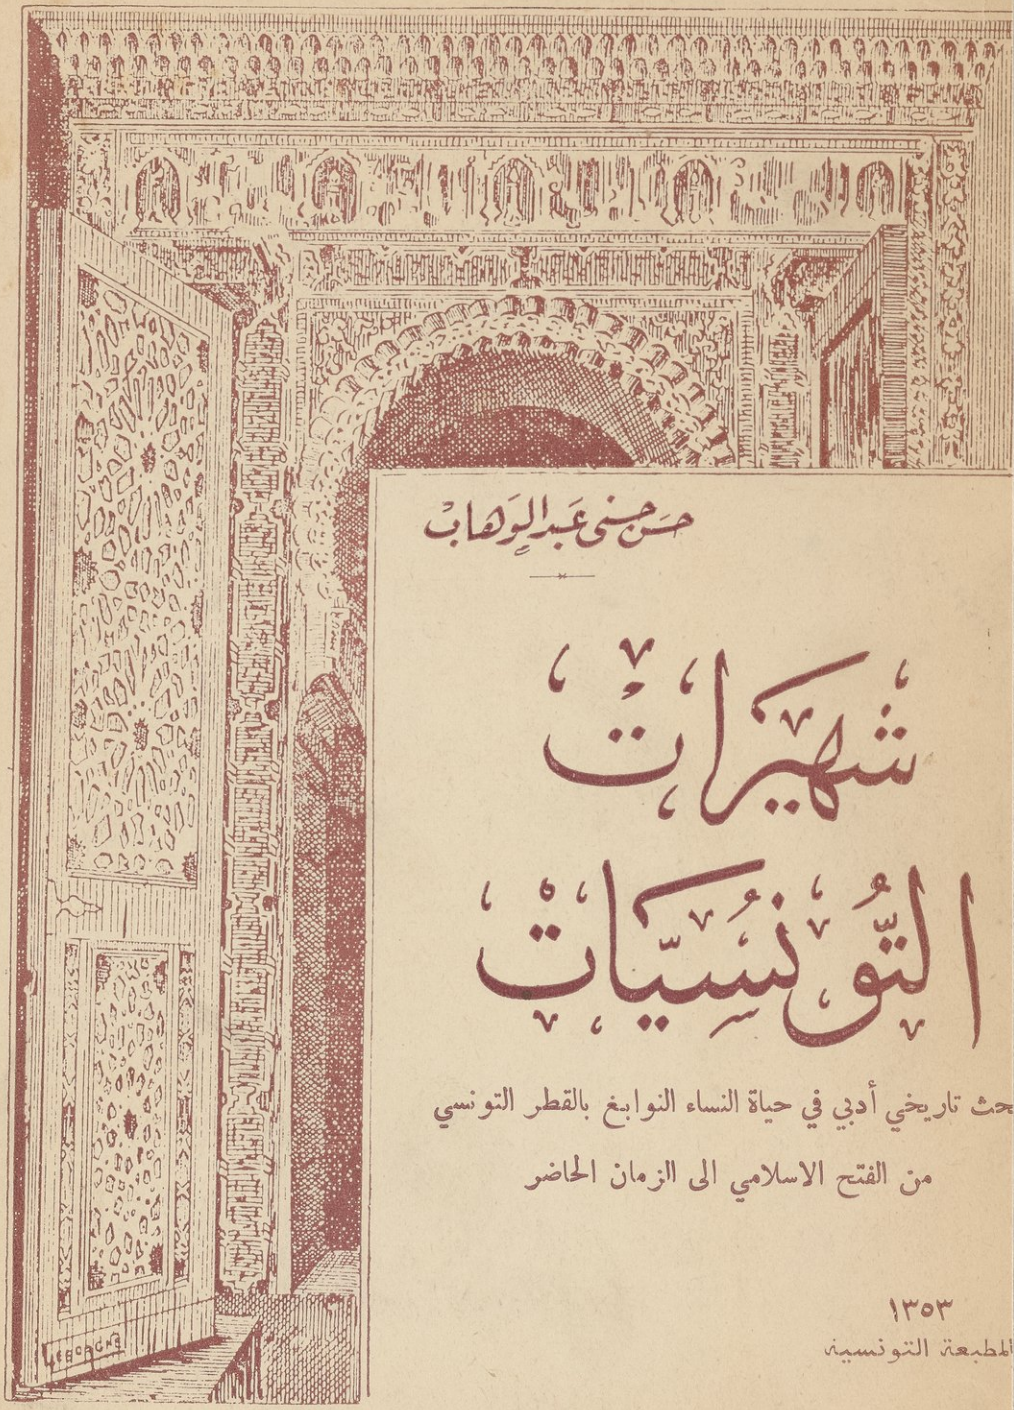 حَسَن حسنى عَبد الوَهابْ
شهيرات
التّونسيّات
بحث تاريخي أدبي في حياة النساء النوابغ بالقطر التونسي
من الفتح الاسلامي الى الزمان الحاضر
١٣٥٣
المطبعة التونسية
LEBORGNE